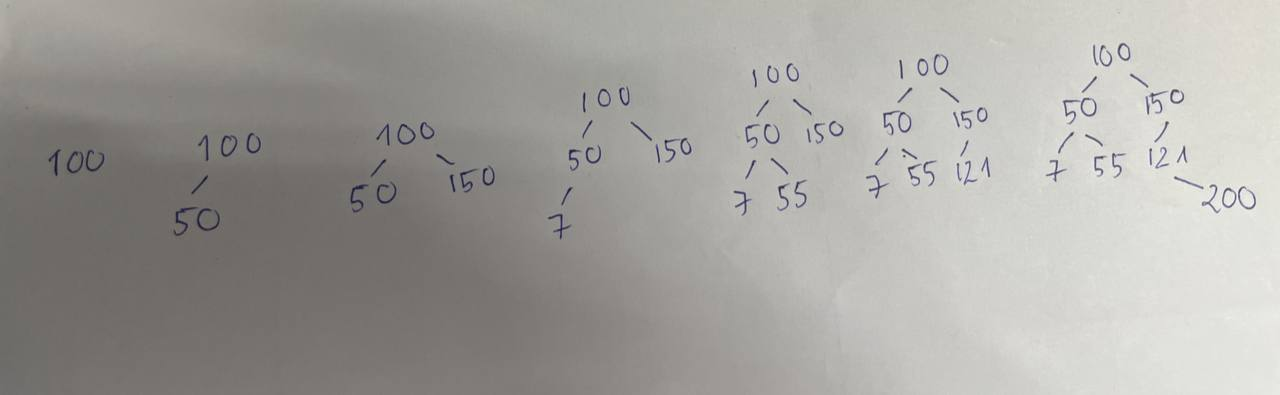 100
100
50
100
50 150
100
50 150
7
100
50 150
7 55
100
50 150
7 55 121
100
50 150
7 55 121
200